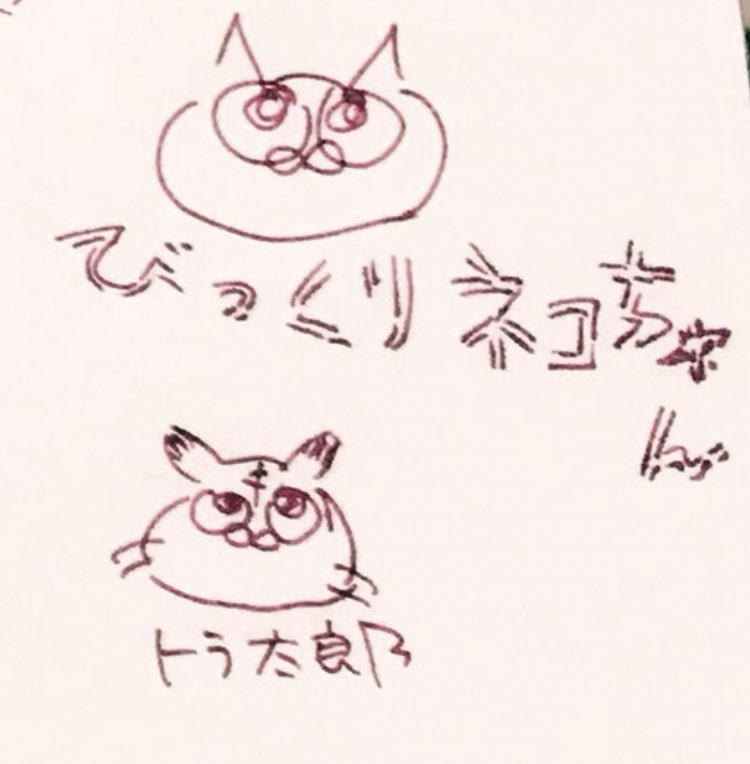 びっくりネコちゃん
トラ太郎